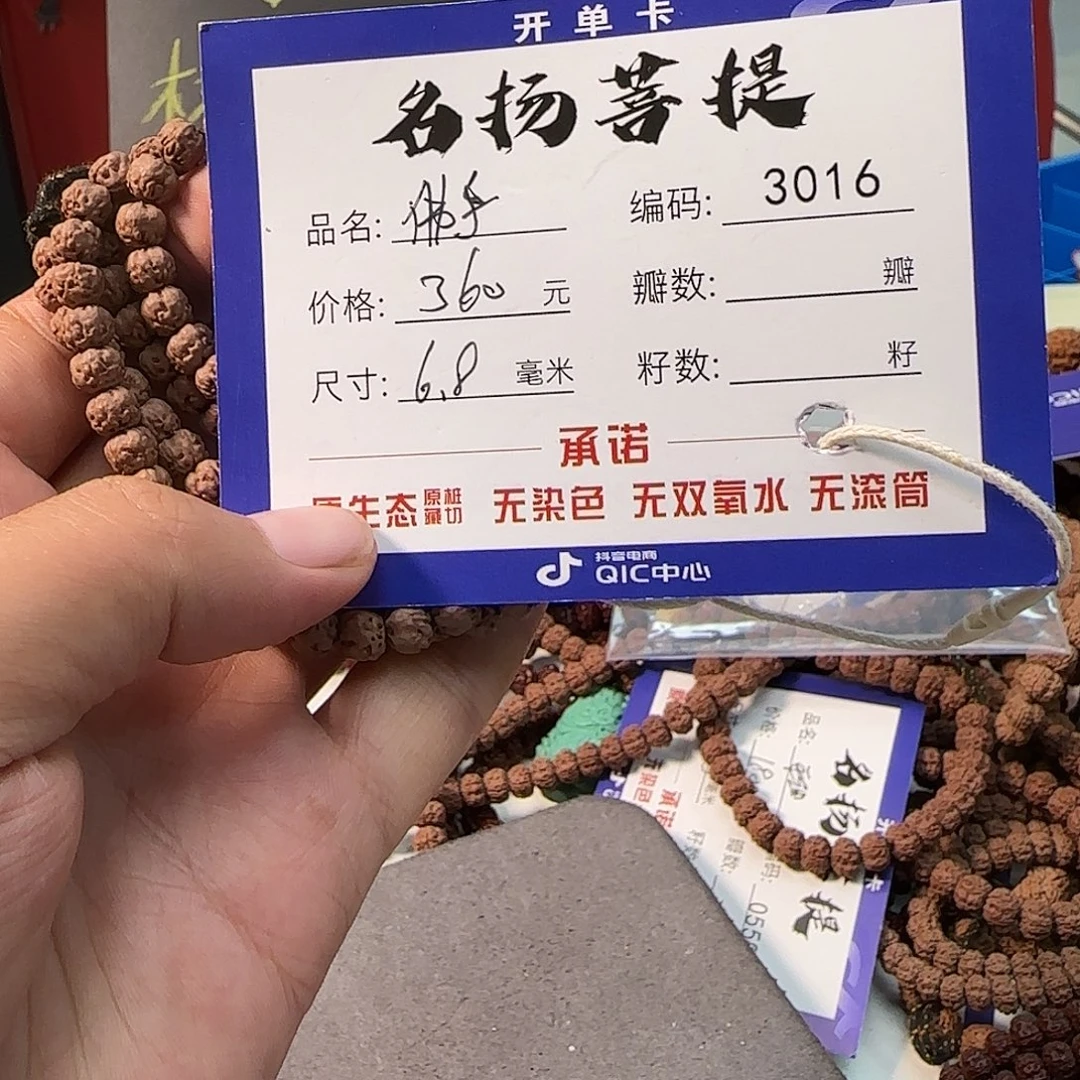 开单卡
名扬菩提
品名: 佛手 编码: 3016
价格: 360 元 瓣数: 瓣
尺寸: 6.8 毫米 籽数: 籽
承诺
原生态 原桩藏切 无染色 无双氧水 无滚筒
抖音电商
QIC中心
名扬 提
品名:
价格:
籽数:
瓣数:
承诺
无染色